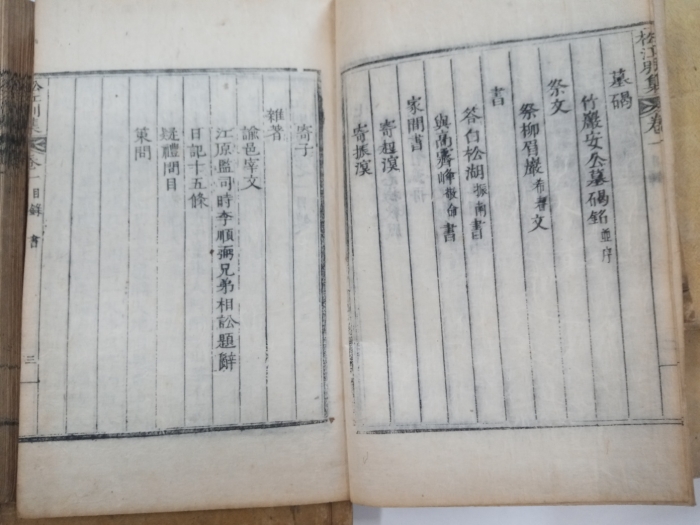 松江別集 卷一
墓碣
竹巖安公墓碣銘 並序
祭文
祭柳眉巖 希春 文
書
答白松湖 振南 書
與南霽峰 書
家間書
寄起溟
寄振溟
寄子
雜著
諭邑宰文
江原監司時李順彌兄弟相訟題辭
日記十五條
疑禮問目
策問
松江別集 卷一 目錄 書
三